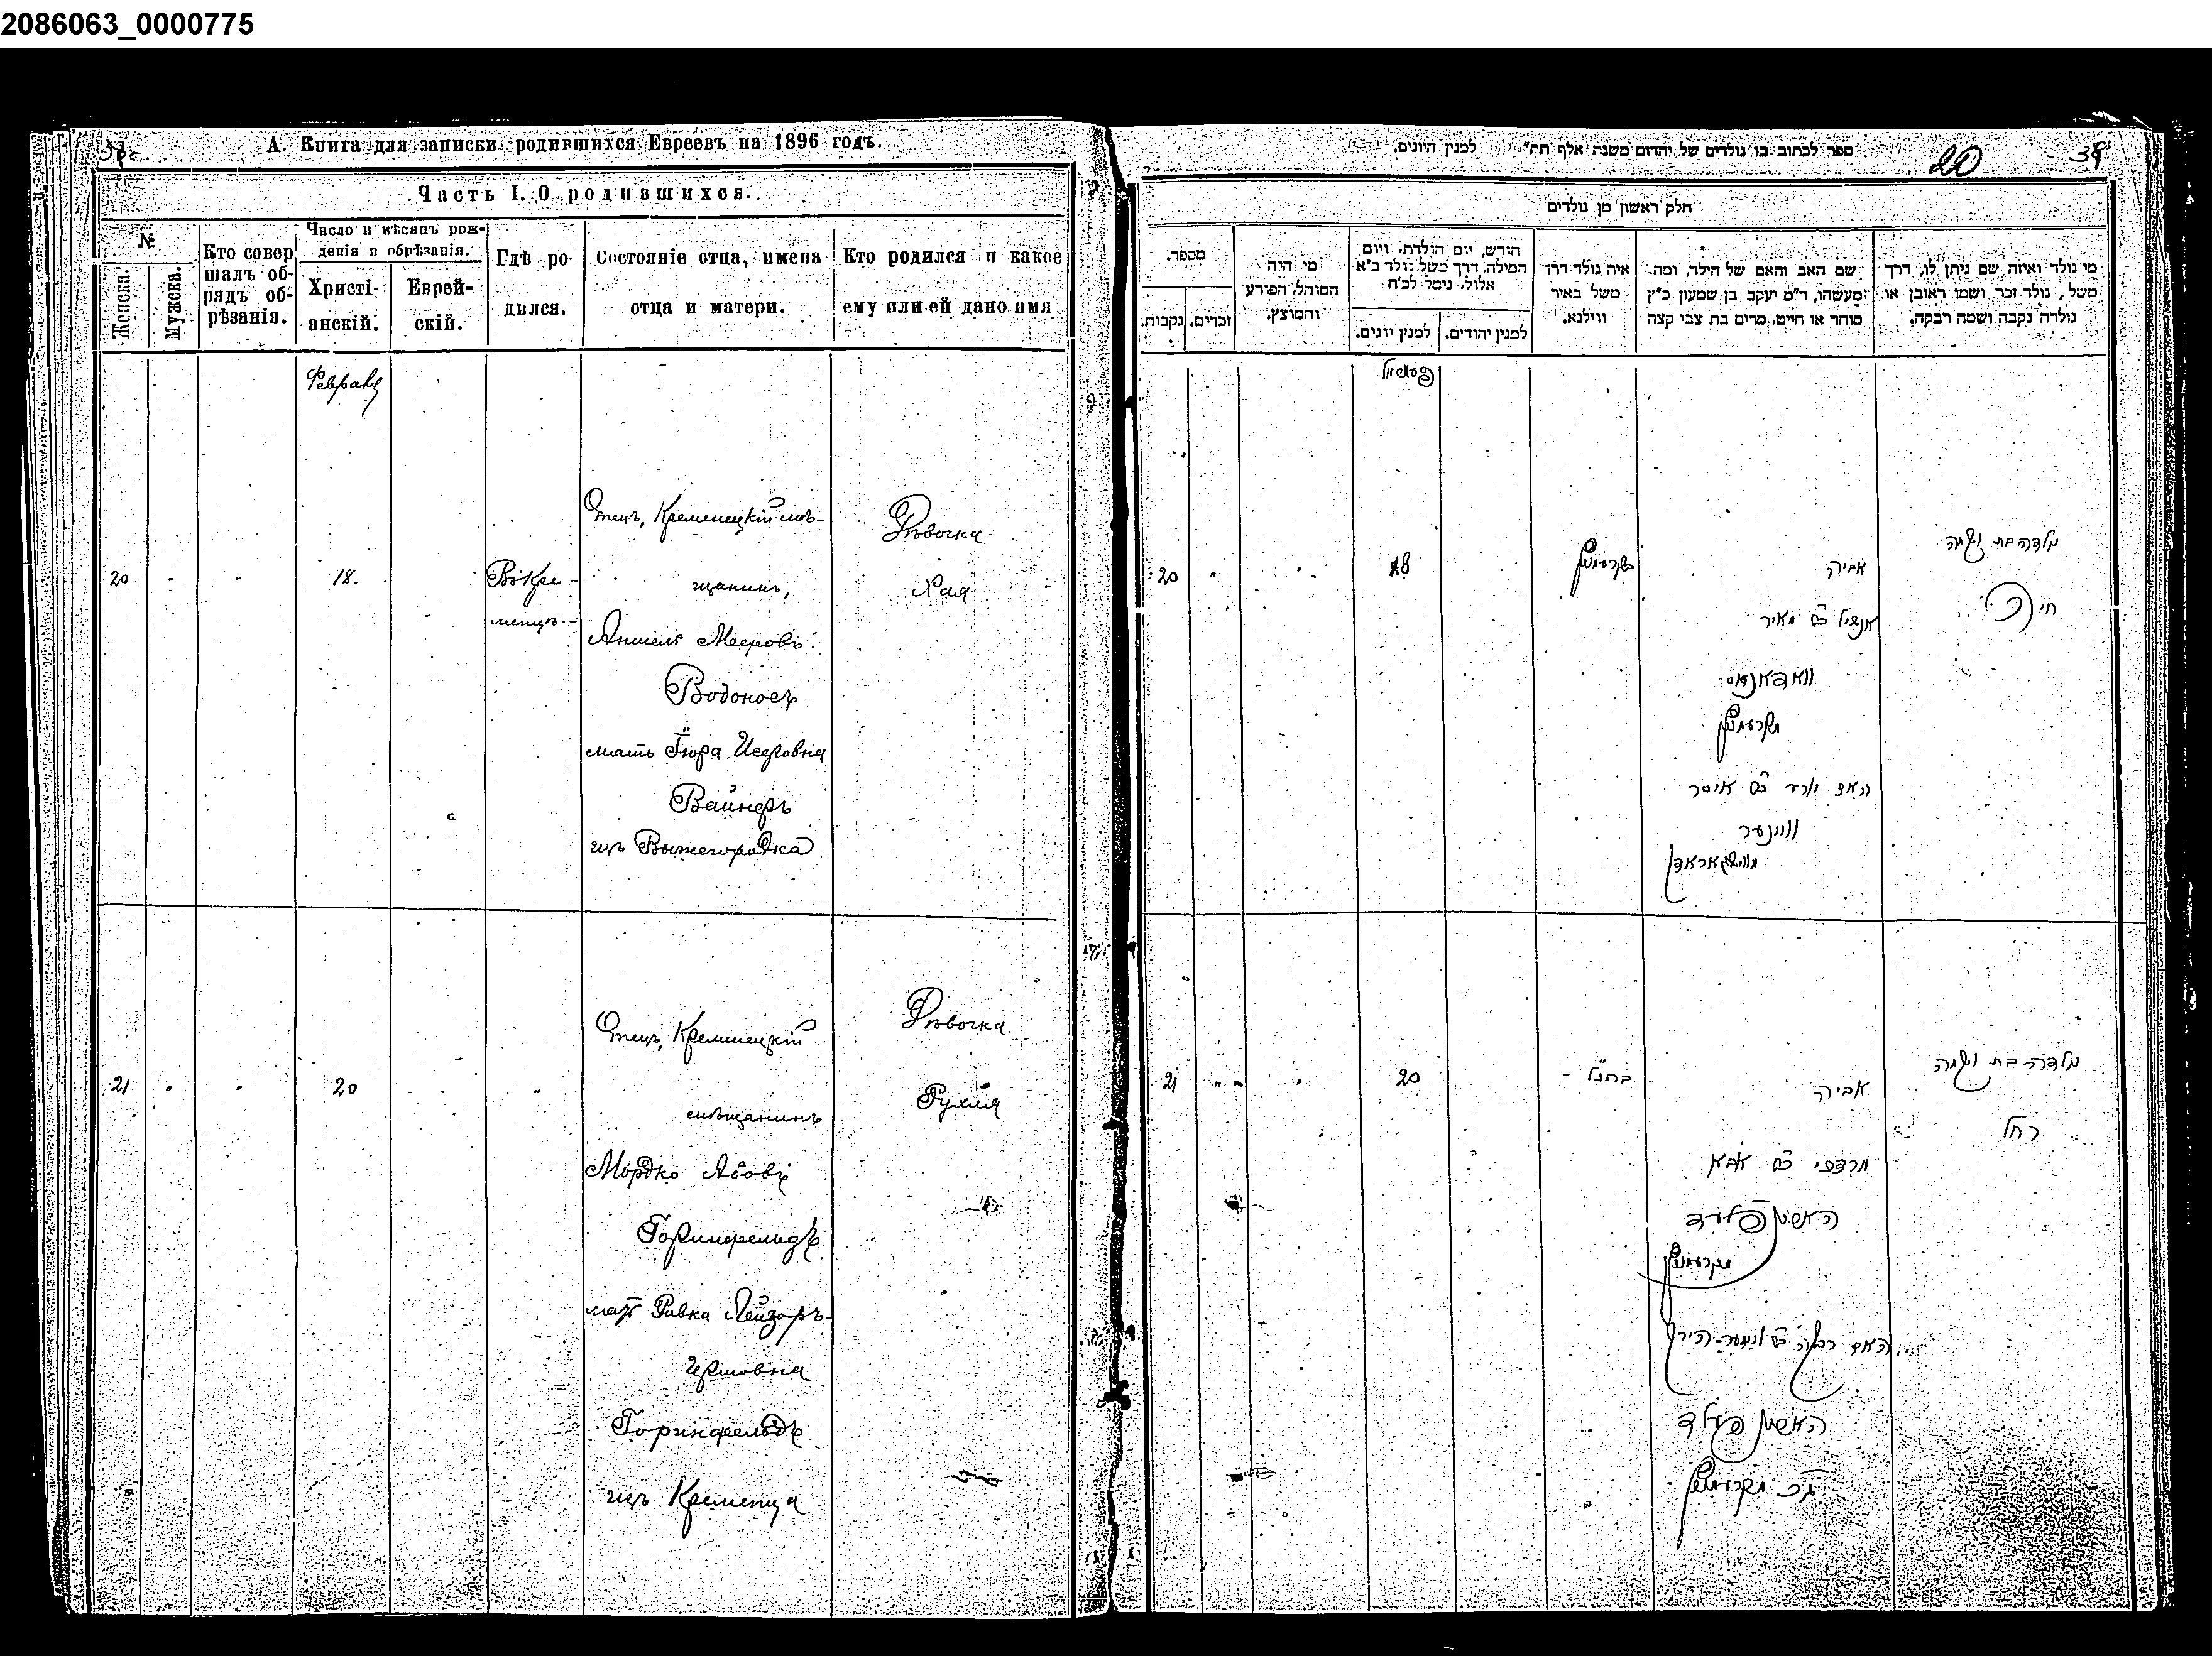 2086063_0000775
А. Книга для записки родившихся Евреевъ на 1896 годъ.
Часть I. О родившихся.
№
Женска.
Мужска.
Кто совер
шалъ об-
рядъ об-
рѣзанія.
Число и мѣсяцъ рож-
денія и обрѣзанія.
Христі-
анскій.
Еврей-
скій.
Гдѣ ро-
дился.
Состояніе отца, имена
отца и матери.
Кто родился и какое
ему или ей дано имя
Февраля
20
18.
Въ Кре-
менцѣ.
Отецъ, Кременецкій мѣ-
щанинъ,
Аншель Мееровъ
Водоносъ
мать Гюра Исеровна
Вайнеръ
изъ Вышегородка
Дѣвочка
Хая
21
20
"
Отецъ, Кременецкій
мѣщанинъ
Мордко Абовъ
Горинфельдъ
мать Ривка Лейзоръ-
Гершовна
Горинфельдъ
изъ Кременца
Дѣвочка
Рухля
ספר לכתוב בו נולדים של יהדום משנה אלף תת״ למנין היונים.
20
38
חלק ראשון מן נולדים
מספר.
נקבות.
זכרים.
מי היה
המוהל, הפורע
והמוצץ.
חודש, יום הולדת, ויום
המילה, דרך משל נולד כ״א
אלול, נימל לכ״ח
למנין יונים.
למנין יהודים.
איה נולד דרך
משל באיר
ווילנא.
שם האב והאם של הילד, ומה
מעשהו, ד״מ יעקב בן שמעון כ״ץ
סוחר או חייט, מרים בת צבי קצה
מי נולד ואיזה שם ניתן לו, דרך
משל, נולד זכר ושמו ראובן או
נולדה נקבה ושמה רבקה.
20
18
אביה
אנשיל במ מאיר
וואדאנאס
מקרעמניץ
ווײנער
נולדה בת ושמה
חי'
21
20
כהנ״ל
אביה
מרדכי במ אבא
מקרעמניץ
נולדה בת ושמה
רחל